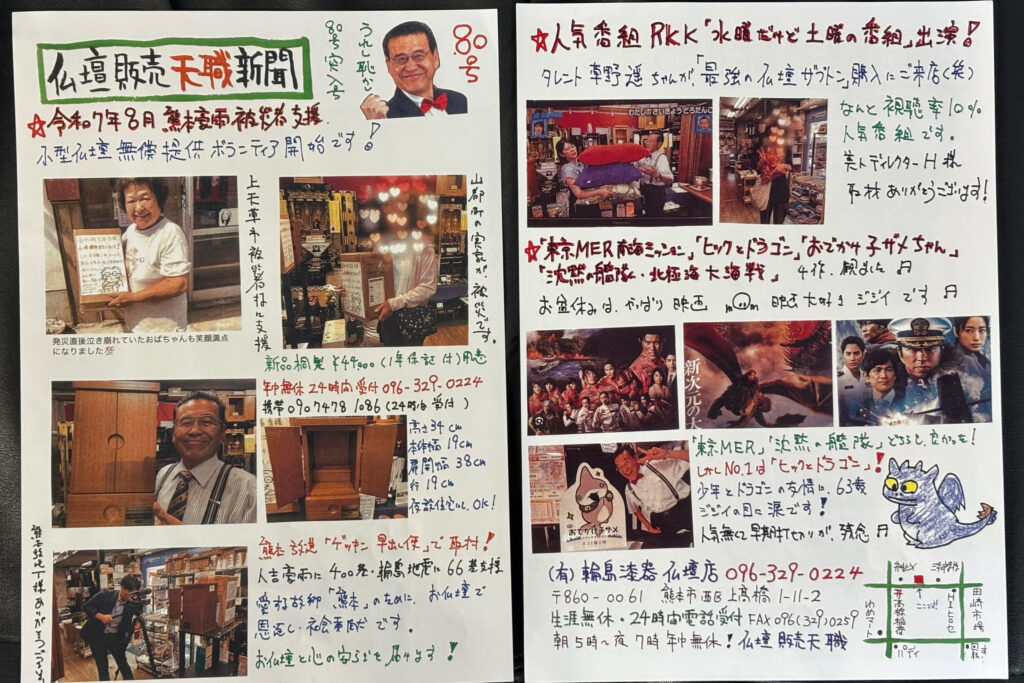 仏壇販売天職新聞
うれし恥かし
80号突入号
80号
☆令和7年8月 熊本豪雨被災者支援
小型仏壇無償提供ボランティア開始です!
上天草市被災者様に支援
山都町の実家が、被災です。
発災直後泣き崩れていたおばちゃんも笑顔満点
になりました
新品桐製 ¥44,000(1年保証付)用意
年中無休24時間受付 096-329-0224
携帯 09074781086(24時間受付)
高さ34cm
本体幅19cm
扉開幅38cm
行19cm
仮設住宅にも、OK!
熊本放送「ゲツキン早出し便」で取材!
人吉豪雨に400基・輪島地震に66基支援
愛する故郷「熊本」のために、お仏壇で
恩返し・社会奉仕です。
お仏壇と心の安らぎを届けます!
☆人気番組RKK「水曜だけど土曜の番組」出演!
タレント草野遥ちゃんが「最強の仏壇ザブトン」購入にご来店(笑)
わたしのさいきょうとろたんに
なんと視聴率10%
人気番組です。
美人ディレクターH様
取材ありがとうございます!
☆「東京MER南海ミッション」「ヒックとドラゴン」「おでかけ子ザメちゃん」
「沈黙の艦隊・北極海大海戦」4作、観ました
お盆休みは、やっぱり映画 映画大好きジジイです
新次元の
おでかけ子ザメ
「東京MER」「沈黙の艦隊」どちらも、良かったな!
しかしNo.1は「ヒックとドラゴン」!
少年とドラゴンの友情に、63歳
ジジイの目に涙です!
人気無くて早期打ち切りが、残念
(有)輪島漆器仏壇店 096-329-0224
〒860-0061 熊本市西区上高橋1-11-2
生涯無休・24時間電話受付 FAX096(329)0259
朝5時〜夜7時年中無休!仏壇販売天職
ここ!
高橋稲荷
ヒロセ
田崎市場
わのマート
パディ